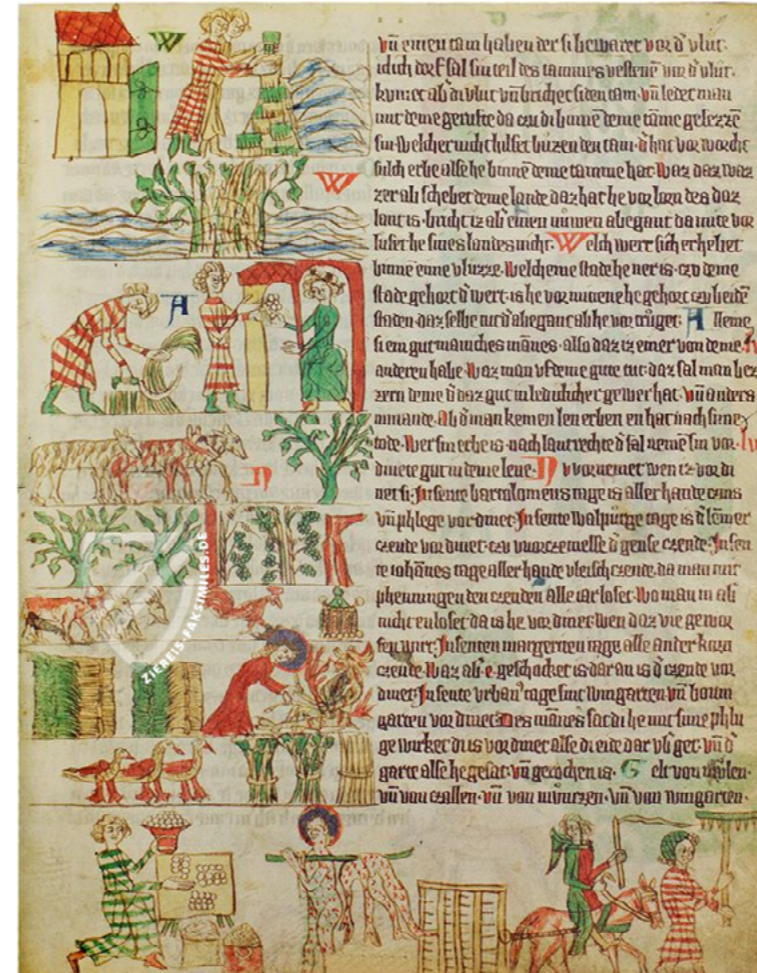 W
vñ einen tam haben der si bewaret vor d' vlut.
idich dorf sal sin teil des tammes vestenē vor d' vlut.
kvmet ab' di vlut vñ brichet siden tam. vñ ledet man
mit deme gerufte da czu di binnē deme tāme gesezzē
sin. Welcher nicht hilfet buzen den tam. d' hat vor worcht
sulch erbe alse he binnē deme tamme hat. Waz daz waz
W
zer ab schebet deme lande daz hat he vor lorn des daz
lant is. bricht iz ab' einen nuwen abegant da mite vor
luset he sines landes nicht. Welch wert sich erhebet
binnē eime vlizze. Welcheme stade he ner is. czv deme
stade gehort d' wert. is he vor mittene he gehort czv beidē
staden. daz selbe tut d' abegant ab he vor truget. A lleme
A
si ein gut manches mānes. also daz iz einer von deme
anderen habe. Waz man vf deme gute tut. daz sal man bez
zern deme d' daz gut in ledichlicher gewer hat. vñ anders
nimande. Ab d' man keinen len erben en hat nach sime
tode. Wer sin erbe is. nach lantrechte d' sal nemē sin vor
dinete gut in deme lene. N v vornemet wen iz vor di
N
net si. In sente bartolomeus tage is aller hande czins
vñ phlege vor dinet. In sente Walpurge tage is d' lemer
czende vor dinet. czv wurczemesse d' gense czende. In sen
te iohānes tage aller hande vleisch czende. da man mit
phenningen den czenden alle iar loset. Wo man in ab'
nicht en loset da is he vor dinet wen daz vie gewor
fen wirt. In senten margreten tage alle ander korn
czende. Waz ab' e. geschocket is dar an is d' czende vor
dinet. In sente vrban' tage sint wingarten vñ boum
garten vor dinet. Des mānes sat di he mit sime phlu
ge wirket di is vor dinet alse di eide dar vb' get. vñ d'
garte alse he gesat. vñ gerechen is. G elt von mulen.
vñ von czollen. vñ von munzen. vñ von wingarten.
ZIEREIS-FAKSIMILES.DE